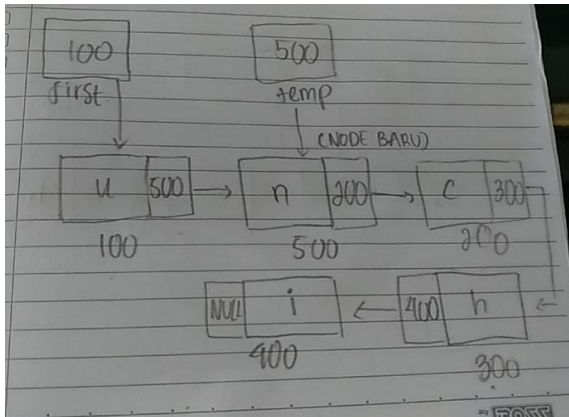 100 500
first temp
(NODE BARU)
u 500 n 200 c 300
100 500 200
NULL i 400 h
400 300